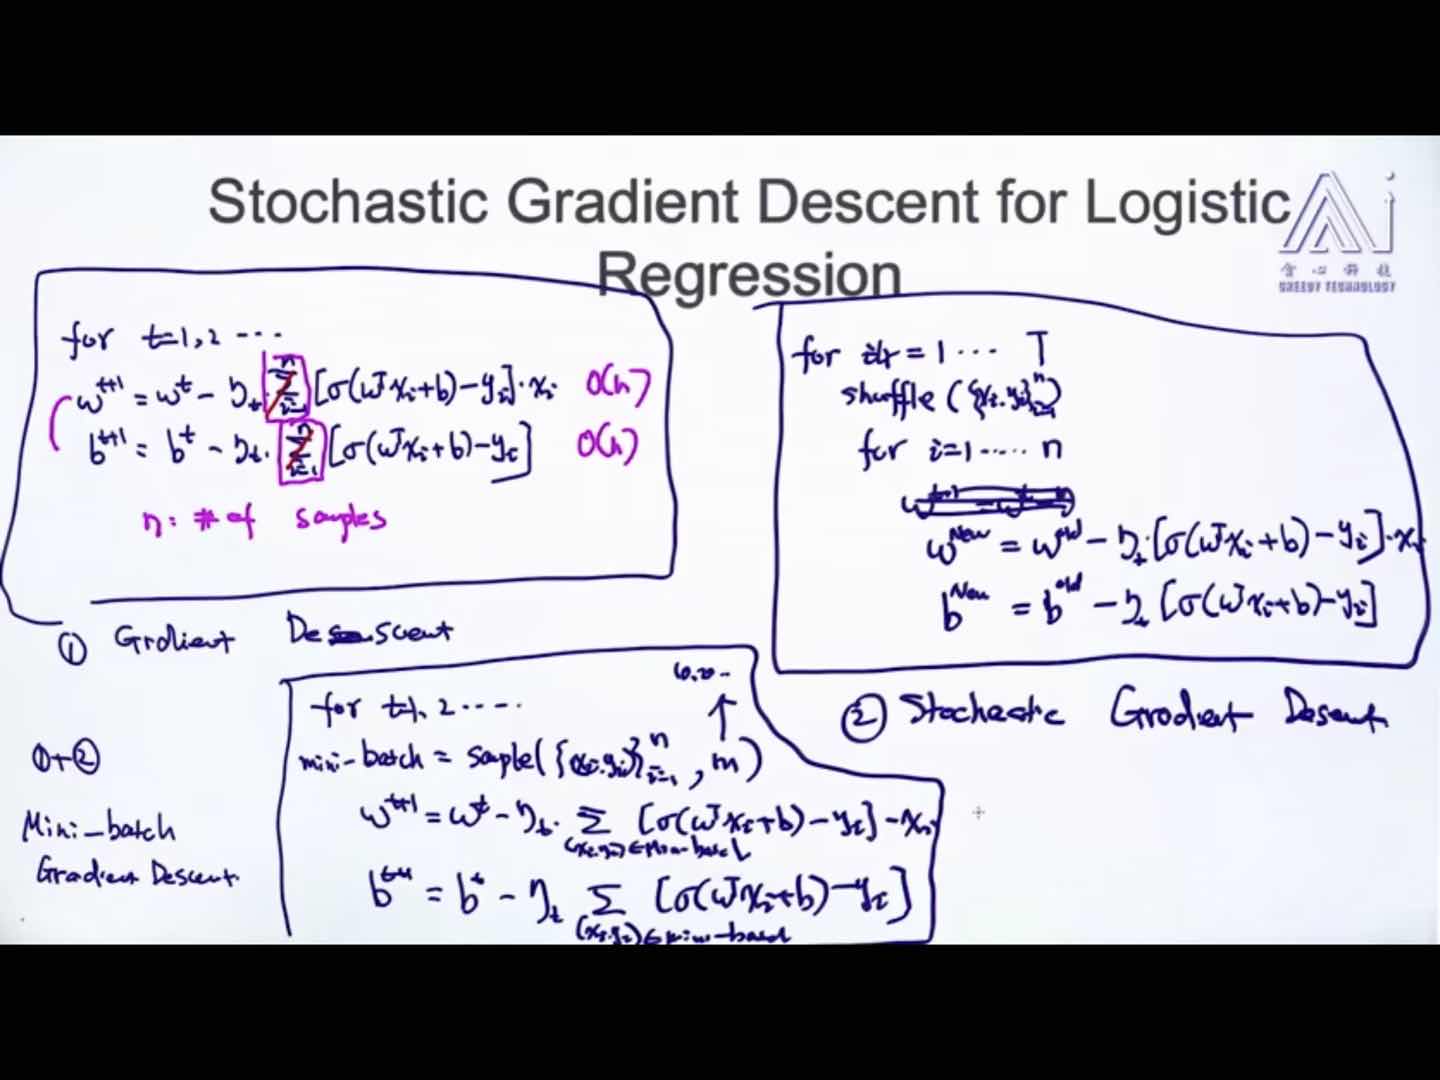 Stochastic Gradient Descent for Logistic
Regression
贪心科技
GREEDY TECHNOLOGY
for t=1,2 ...
w^{t+1} = w^t - η_t · Σ_{i=1}^{n} [σ(w^T x_i+b)-y_i]·x_i O(n)
b^{t+1} = b^t - η_t · Σ_{i=1}^{n} [σ(w^T x_i+b)-y_i] O(n)
n: # of samples
① Gradient Descent
for iter = 1 ... T
shuffle ({x_i,y_i}_{i=1}^{n})
for i=1 ..... n
w^{New} = w^{old} - η_t·[σ(w^T x_i+b)-y_i]·x_i
b^{New} = b^{old} - η_t [σ(w^T x_i+b)-y_i]
② Stochastic Gradient Descent
①+②
Mini-batch
Gradient Descent
for t=1, 2 .....
mini-batch = sample({x_i,y_i}_{i=1}^{n}, m)
w^{t+1} = w^t - η_t · Σ_{(x_i,y_i)∈mini-batch} [σ(w^T x_i+b)-y_i]·x_i
b^{t+1} = b^t - η_t Σ_{(x_i,y_i)∈mini-batch} [σ(w^T x_i+b)-y_i]